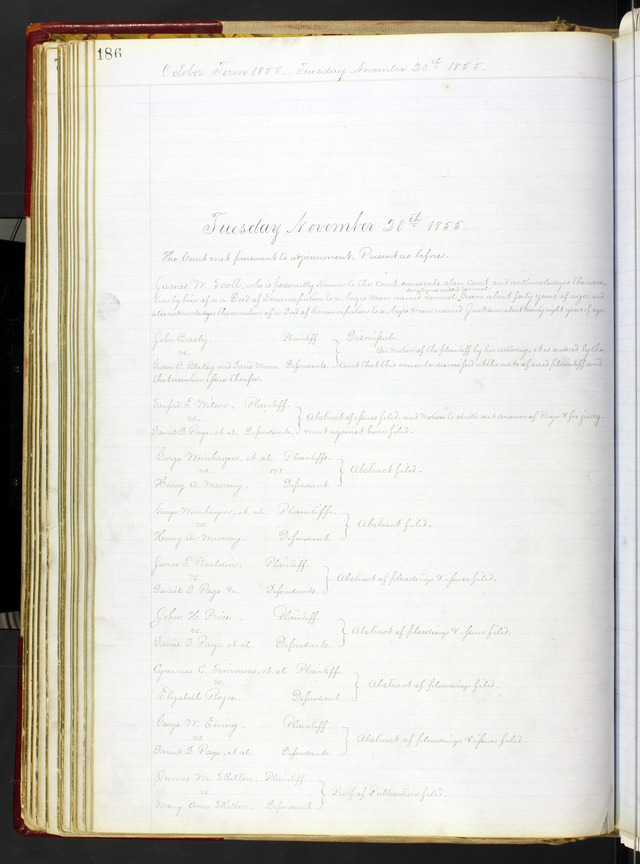 186
October Term 1855. Tuesday November 20th 1855.
Tuesday November 20th 1855.
The Court met pursuant to adjournment. Present as before.
James W. Scott, who is personally known to the Court, comes into open Court and acknowledges the
a Deed of Emancipation to a Negro man named Samuel about forty years of age, and
also acknowledges the execution of a Deed of Emancipation to a Negro man named Jackson about twenty eight years of age.
John Busby. Plaintiff. Dismissed.
vs. On motion of the plaintiff by his attorney, it is ordered by the
B. Blakey and Defendants. Court that this cause be dismissed at the costs of said plaintiff and
that execution issue therefor.
E. Wilson. Plaintiff.
vs. Abstract of issues filed, and motion to strike out answer of Page & for judg-
Daniel D. Page, et al. Defendants. ment against him filed.
George et al. Plaintiffs.
vs. 198 Abstract filed.
Henry A. Murray. Defendant.
George et al. Plaintiffs.
vs. Abstract filed.
Henry A. Murray. Defendant.
James E. Plaintiff.
vs. Abstract of pleadings & issues filed.
Daniel D. Page &c. Defendants.
John H. Price. Plaintiff.
vs. Abstract of pleadings & issues filed.
Daniel D. Page, et al. Defendants.
C. Simmons, et al. Plaintiffs.
vs. Abstract of pleadings filed.
Elizabeth Defendant.
George W. Ewing. Plaintiff.
vs. Abstract of pleadings & issues filed.
Daniel D. Page, et al. Defendants.
James M. Skelton. Plaintiff.
vs. Proof of Publication filed.
Mary Ann Skelton. Defendant.